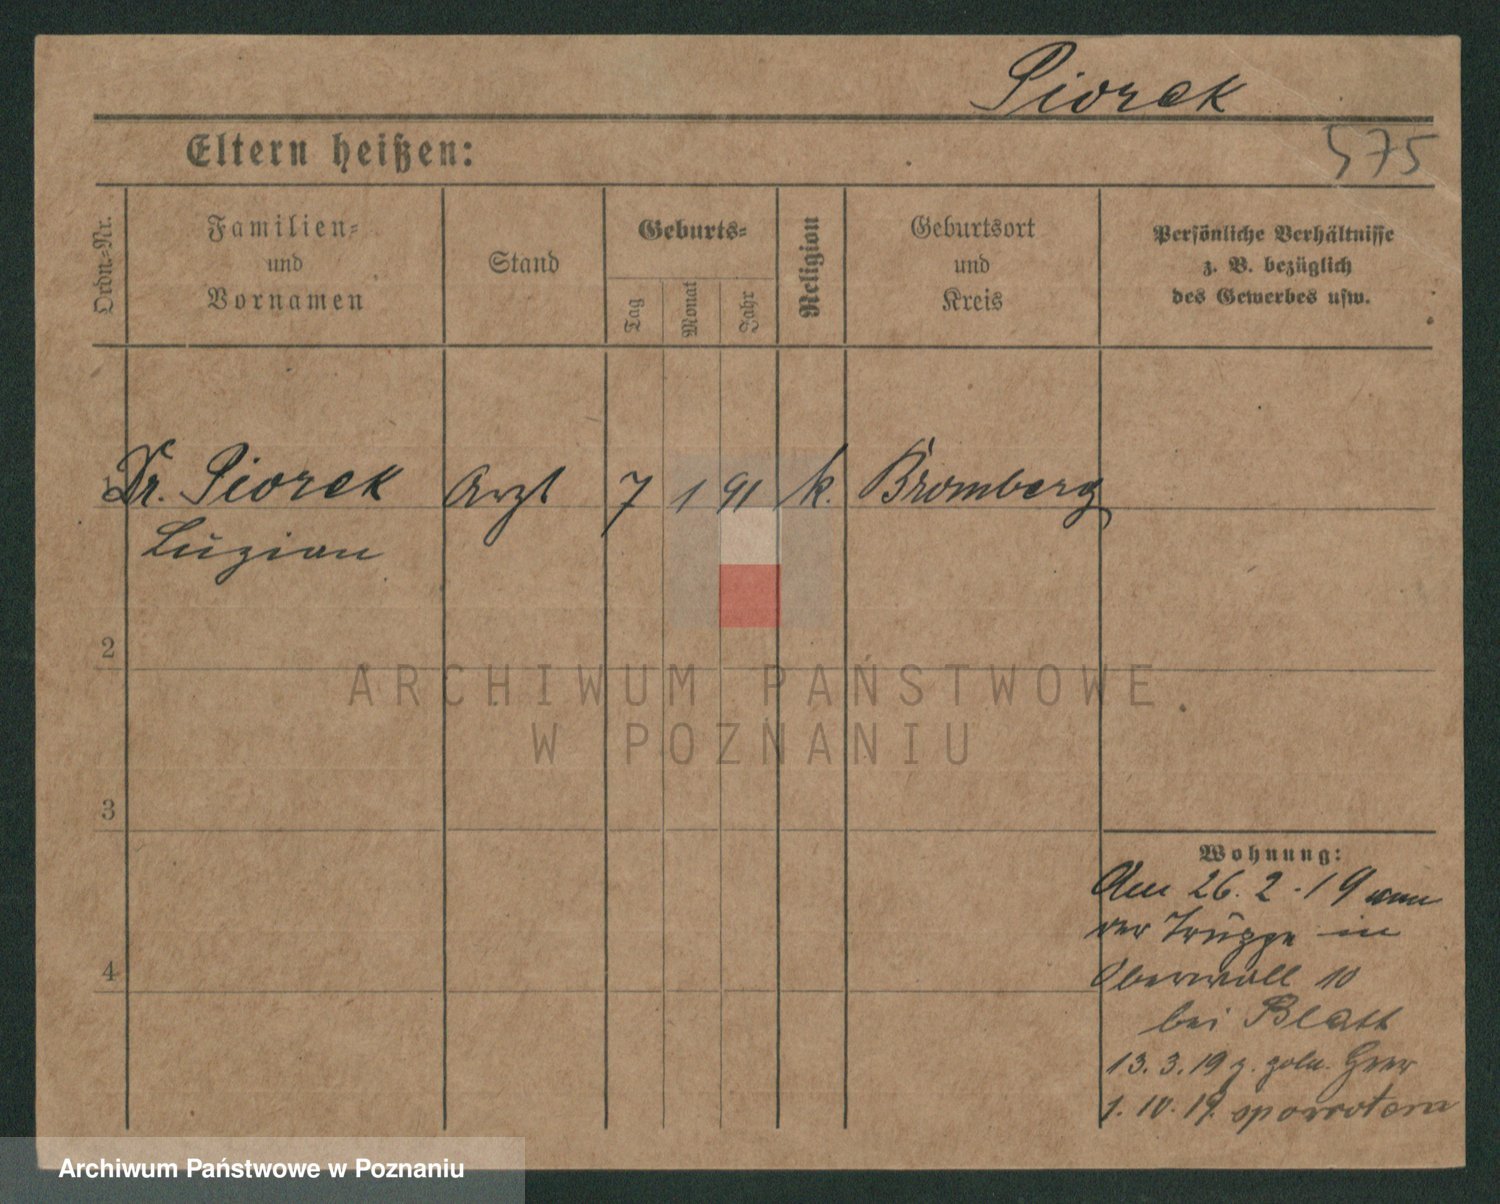 Piorek
575
Eltern heißen:
Ordn.-Nr.
Familien-
und
Vornamen
Stand
Geburts-
Tag
Monat
Jahr
Religion
Geburtsort
und
Kreis
Persönliche Verhältnisse
z. B. bezüglich
des Gewerbes usw.
1 Dr. Piorek Arzt 7 1 91 k. Bromberg
Luzian
2
ARCHIWUM PAŃSTWOWE
W POZNANIU
3
Wohnung:
Am 26.2.19 von
der Truppe in
4
Oberwall 10
bei Blatt
13.3.19
1.10.19. spowrotem
Archiwum Państwowe w Poznaniu